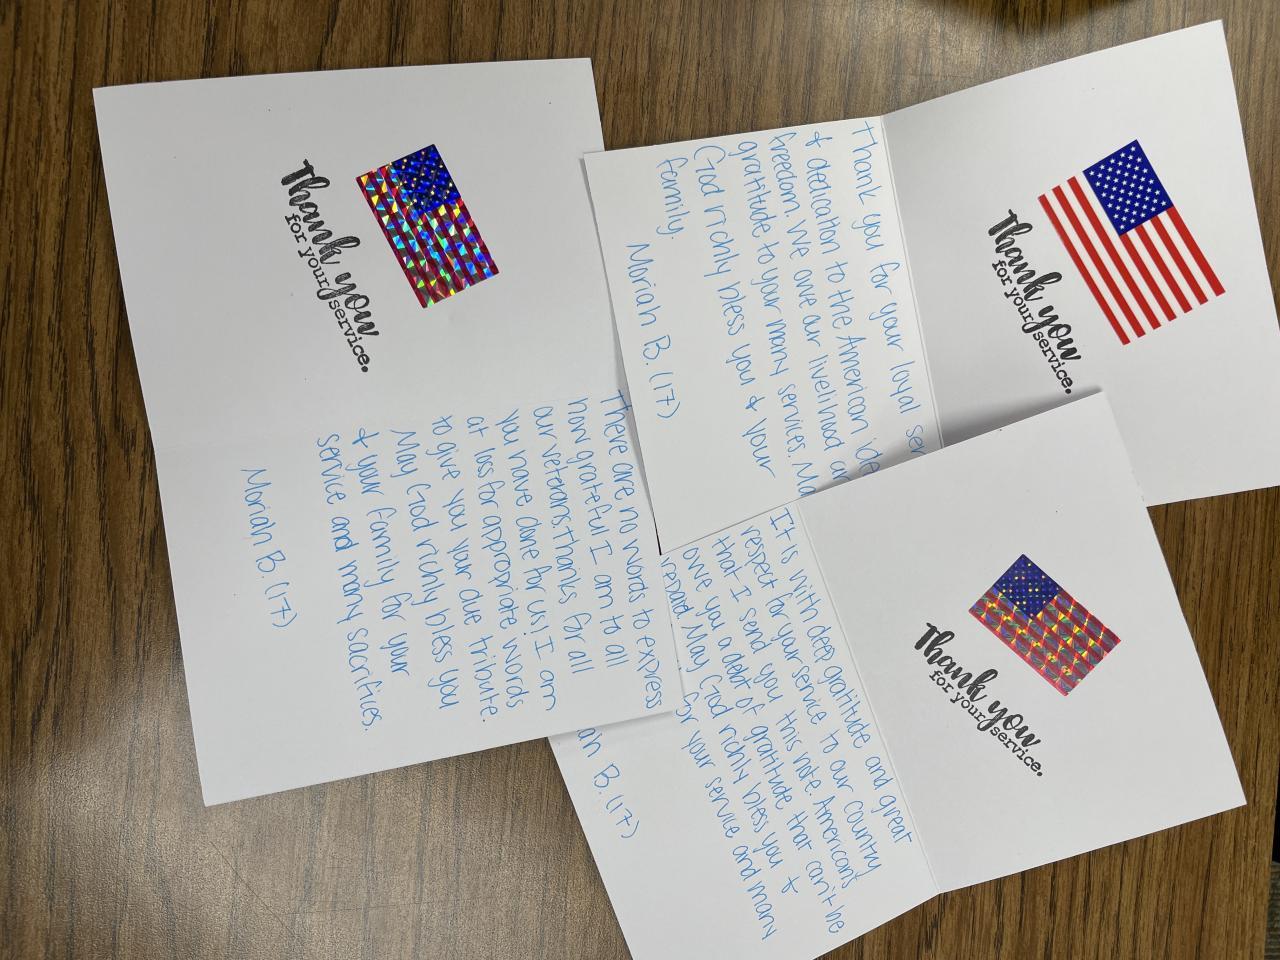 Thank you
for your service.
There are no words to express
how grateful I am to all
our veterans. Thanks for all
you have done for us! I am
at loss for appropriate words
to give you your due tribute.
May God richly bless you
& your family for your
service and many sacrifices.
Moriah B. (17)
Thank you
for your service.
Thank you for your loyal
& dedication to the American
freedom. We owe our livelihood
gratitude to your many services.
God richly bless you & your
family.
Moriah B. (17)
Thank you
for your service.
It is with deep gratitude and great
respect for your service to our country
that I send you this note. Americans
owe you a debt of gratitude that can't be
repaid. May God richly bless you &
for your service and many
B. (17)